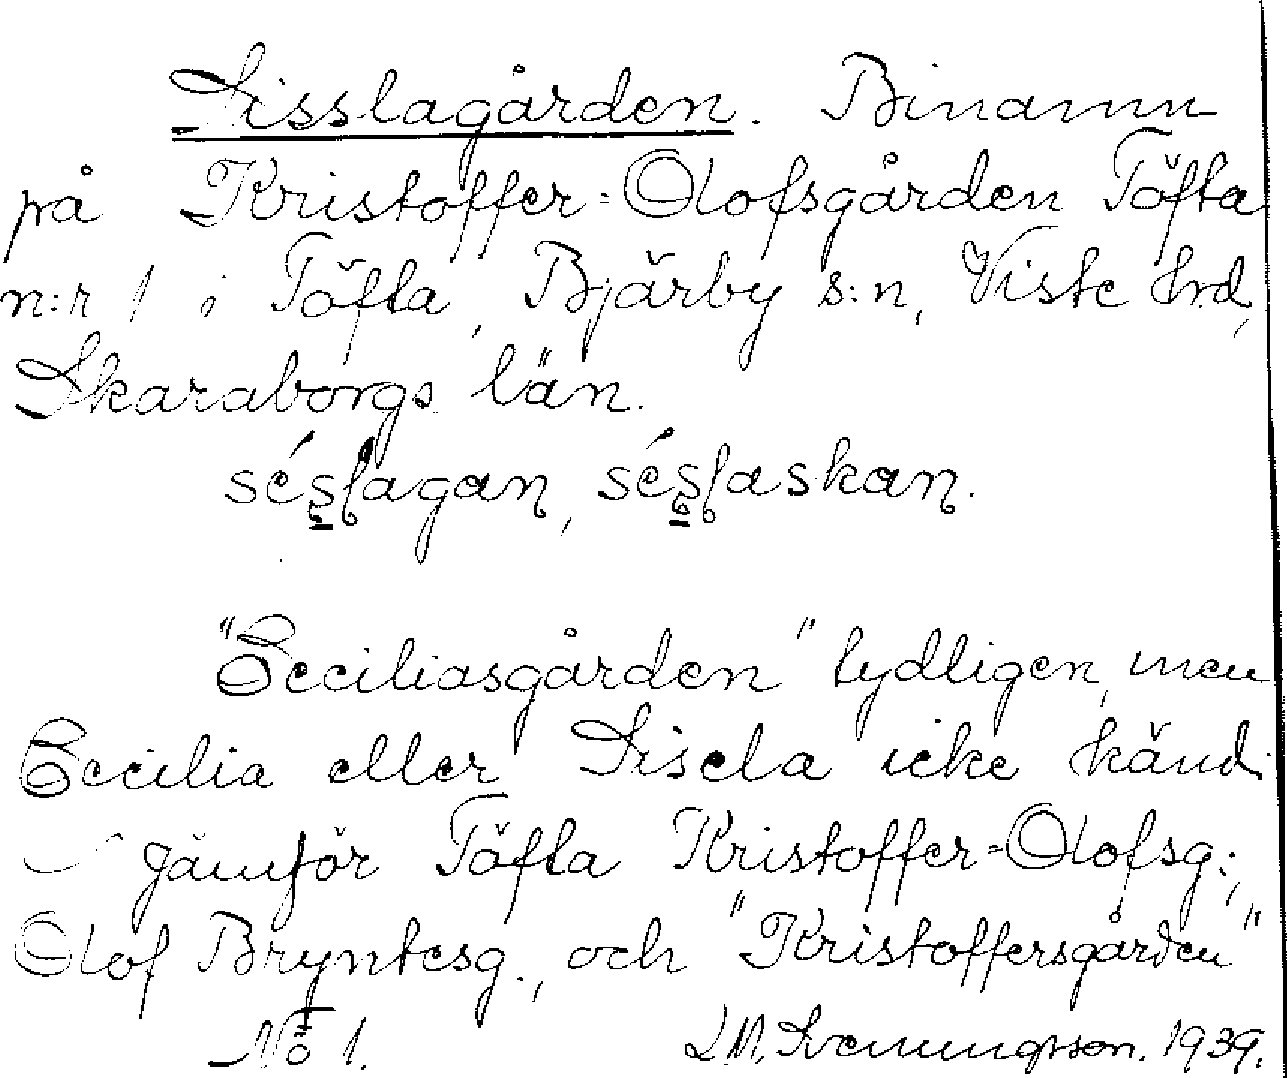 Sisslagården. Binamn
på Kristoffer-Olofsgården Töfta
n:r 1 i Töfta, Bjärby s:n, Viste hrd,
Skaraborgs län.
séslagan, séslaskan.
"Ceciliasgården" tydligen, men
Cecilia eller Sisela icke känd.
Jämför Töfta Kristoffer-Olofsg:,
Olof Bryntesg., och "Kristoffersgården"
No 1. L M. Svenungsson. 1939.